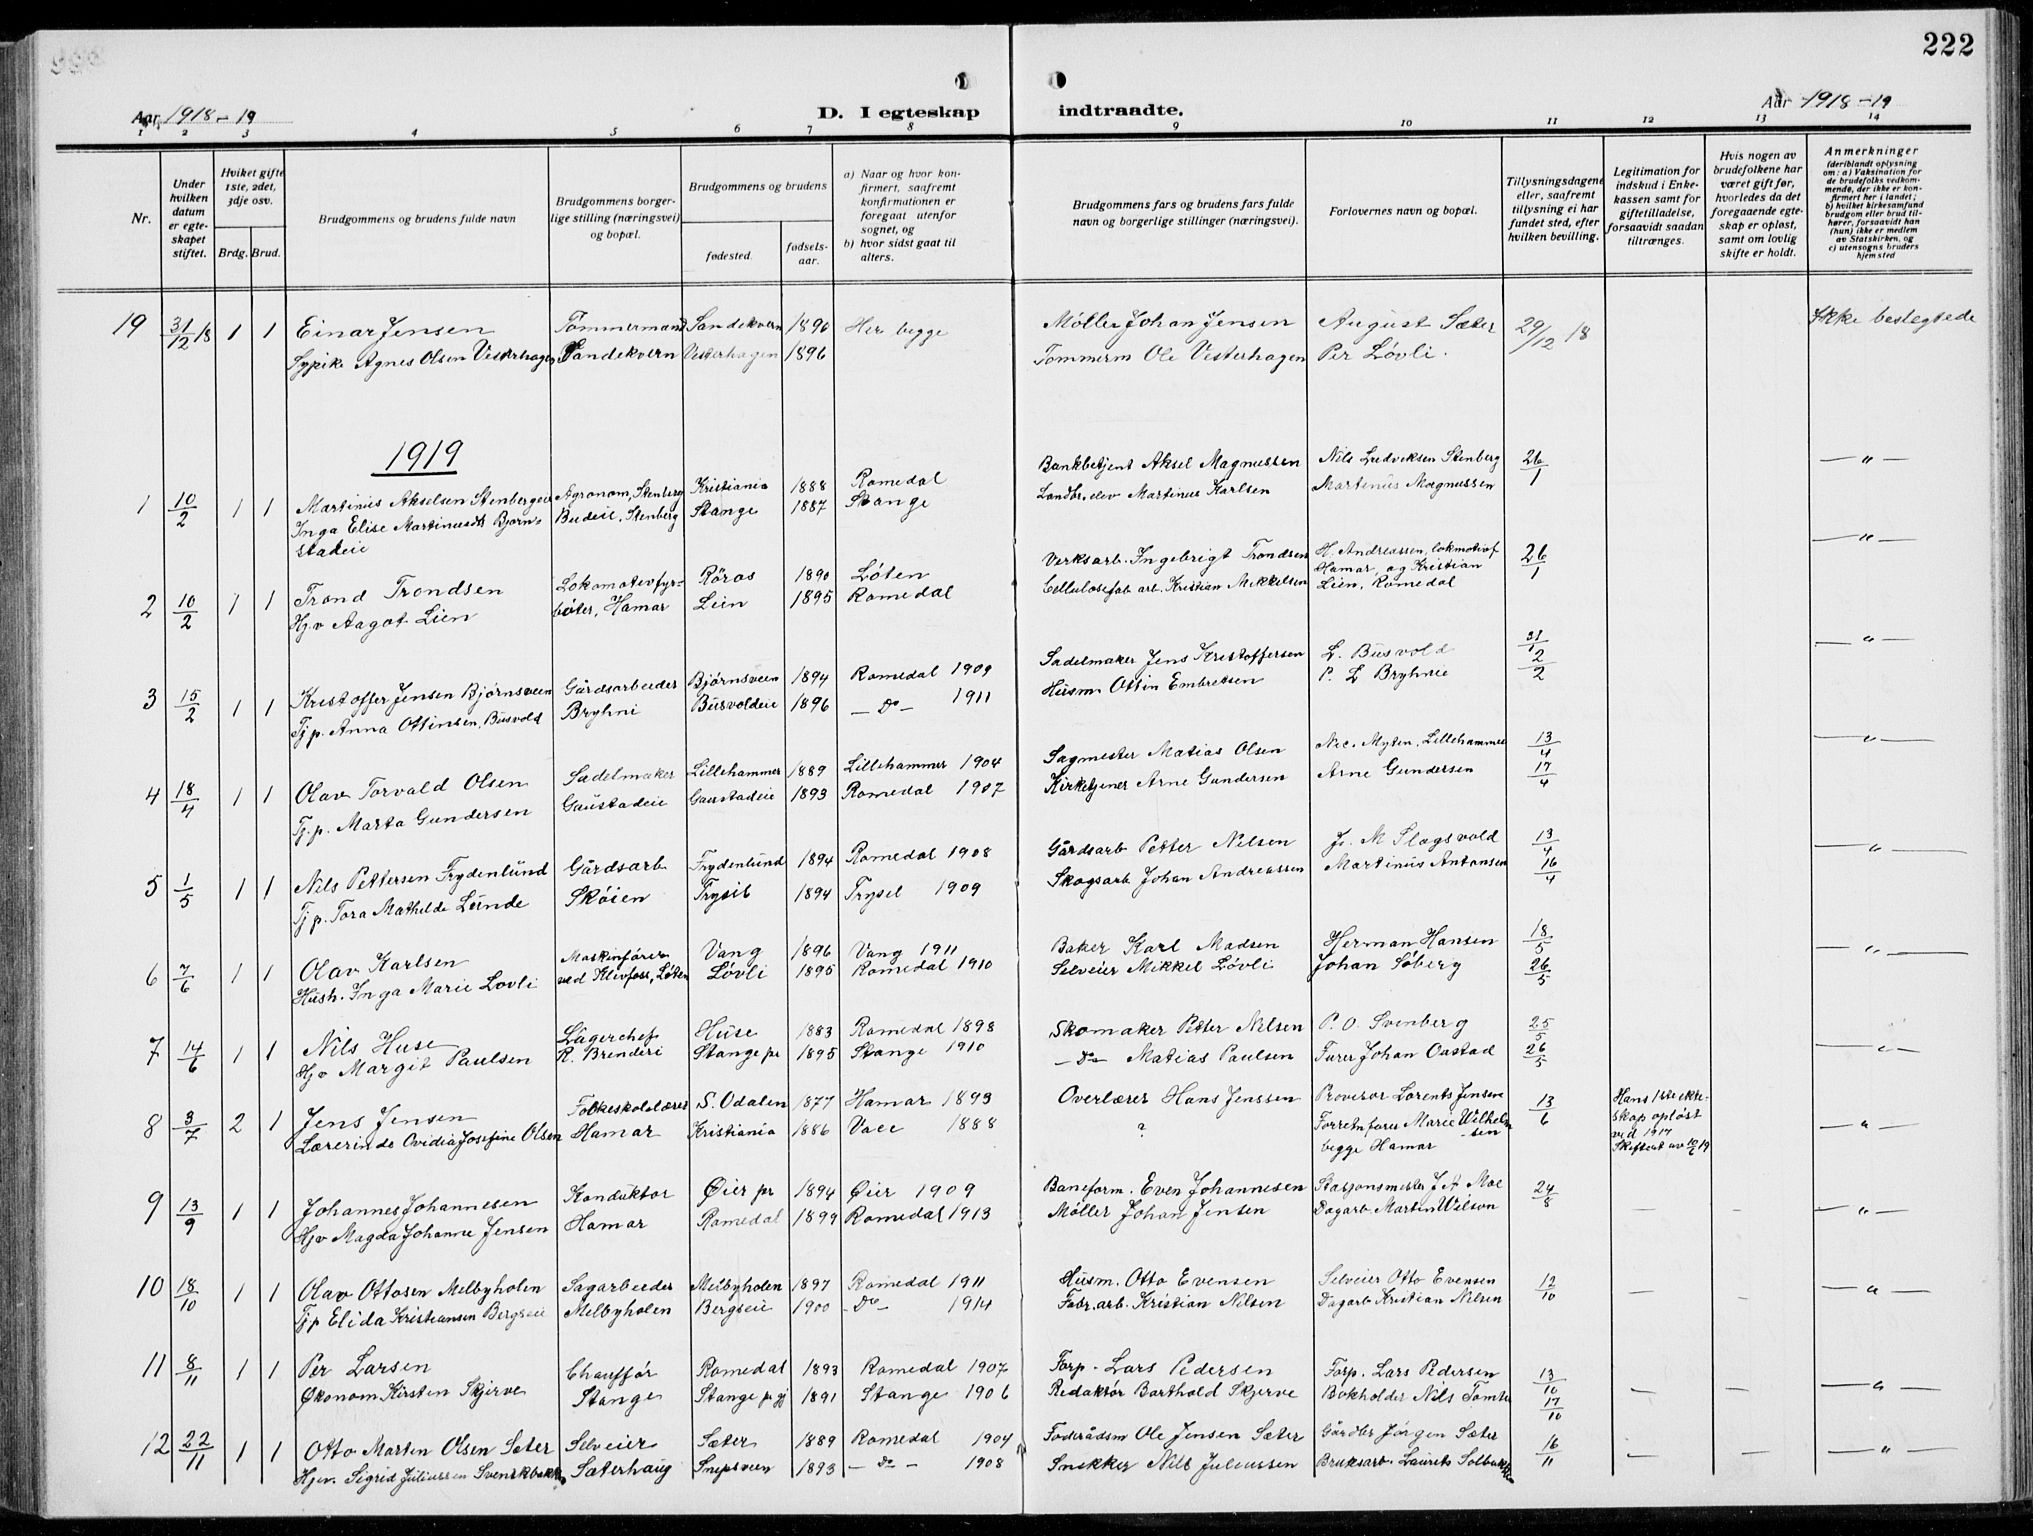 222
Aar 1918-19
D. I egteskap
indtraadte.
Aar 1918-19
1 2 3 4 5 6 7 8 9 10 11 12 13 14
Nr.
Under hvilken datum er egteskapet stiftet.
Hvilket gifte 1ste, 2det, 3dje osv.
Brdg. Brud.
Brudgommens og brudens fulde navn
Brudgommens borgerlige stilling (næringsvei) og bopæl.
Brudgommens og brudens
fødested.
fødselsaar.
a) Naar og hvor konfirmert, saafremt konfirmationen er foregaat utenfor sognet, og
b) hvor sidst gaat til alters.
Brudgommens fars og brudens fars fulde navn og borgerlige stillinger (næringsvei).
Forlovernes navn og bopæl.
Tillysningsdagene eller, saafremt tillysning ei har fundet sted, efter hvilken bevilling.
Legitimation for indskud i Enkekassen samt for giftetilladelse, forsaavidt saadan tiltrænges.
Hvis nogen av brudefolkene har været gift før, hvorledes da det foregaaende egteskap er opløst, samt om lovlig skifte er holdt.
Anmerkninger (deriblandt oplysning om: a) Vaksination for de brudefolks vedkommende, der ikke er konfirmert her i landet; b) hvilket kirkesamfund brudgom eller brud tilhører, forsaavidt han (hun) ikke er medlem av Statskirken, og c) utensogns bruders hjemsted
19 31/12 18 1 1 Einar Jensen Tømmermand Sandekvern 1890 Her begge Møller Johan Jensen August Sæter 29/12 18 Ikke beslegtede
Sypike Agnes Olsen Vesterhagen Sandekvern Vesterhagen 1896 Tømmerm Ole Vesterhagen Per Løvli.
1919
1 10/2 1 1 Martinus Akselsen Stenbergeie Agronom, Stenberg Kristiania 1888 Romedal Bankbetjent Aksel Magnussen Nils Ludveksen Stenberg 26/1 —"—
Inga Elise Martinusdt Bjørnstadeie Budeie, Stenberg Stange 1887 Stange Landbr. elev Martinus Karlsen Martinus Magnussen
2 10/2 1 1 Trond Trondsen Lokomotivfyrbøter, Hamar Röros 1890 Løten Verksarb. Ingebrigt Trondsen H. Andreassen, lokomotivf Hamar, og Kristian Lien, Romedal 26/1 —"—
Hjv Aagot Lien Lien 1895 Romedal Cellulosefab arb. Kristian Mikkelsen
3 15/2 1 1 Kristoffer Jensen Bjørnsveen Gårdsarbeider Bjørnsveen 1894 Romedal 1909 Sadelmaker Jens Kristoffersen L. Busvold 31/1 —"—
Tj p. Anna Ottinsen, Busvold Bryhni Busvoldeie 1896 —Do— 1911 Husm. Ottin Embretsen P. L Bryhnie 2/2
4 18/4 1 1 Olav Torvald Olsen Sadelmaker Lillehammer 1889 Lillehammer 1904 Sagmester Matias Olsen Nic. Myten, Lillehammer 13/4 —"—
Tj. p. Marta Gundersen Gaustadeie Gaustadeie 1893 Romedal 1907 Kirketjener Arne Gundersen Arne Gundersen 17/4
5 1/5 1 1 Nils Pettersen Frydenlund Gårdsarb Frydenlund 1894 Romedal 1908 Gårdsarb Petter Nilsen J. M Slagsvold 13/4 —"—
Tj p. Tora Mathilde Lunde Skøien Trysil 1894 Trysil 1909 Skogsarb Johan Andreassen Martinus Antonsen 16/4
6 7/6 1 1 Olav Karlsen Maskinfører Vang 1896 Vang 1911 Baker Karl Madsen Herman Hansen 18/5 —"—
Hush. Inga Marie Lovli ved Klevfoss, Løten Løvli 1895 Romedal 1910 Selveier Mikkel Løvli Johan Søberg 26/5
7 14/6 1 1 Nils Huse Lagerchef Huse 1883 Romedal 1898 Skomaker Petter Nilsen P. O. Svenberg 25/5 —"—
Hjv Margit Paulsen R. Brenderi Stange pr 1895 Stange 1910 —Do— Matias Paulsen Furer Johan Oastad 26/5
8 3/7 2 1 Jens Jensen Folkeskolelærer S. Odalen 1877 Hamar 1893 Overlærer Hans Jenssen Provisor Lorents Jensen 13/6 Hans 1ste ekteskap opløst ved 1917 Skifteat av 10/6 19 —"—
Lærerinde Ovidia Josefine Olsen Hamar Kristiania 1886 1888 ? Forretnfører Marie Wilhelmsen begge Hamar
9 13/9 1 1 Johannes Johannesen Konduktør Øier pr 1894 Øier 1909 Baneform. Even Johannesen Stasjonsmester J. A. Moe 24/8 — — —"—
Hjv Magda Johanne Jensen Hamar Romedal 1899 Romedal 1913 Møller Johan Jensen Dagarb Martin Wilson
10 18/10 1 1 Olav Ottosen Melbyholen Sagarbeider Melbyholen 1897 Romedal 1911 Husm. Otto Evensen Selveier Otto Evensen 12/10 — — —"—
Tj p Elida Kristiansen Bergseie Melbyholen Bergseie 1900 —Do— 1914 Fabr.arb. Kristian Nilsen Dagarb Kristian Nilsen
11 8/11 1 1 Per Larsen Chauffør Romedal 1893 Romedal 1907 Forp. Lars Pedersen Forp. Lars Pedersen 13/10 — — —"—
Økonom Kirsten Skjerve Stange Stange pr gj 1891 Stange 1906 Redaktør Barthold Skjerve Bokholder Nils Tomter 17/10
12 22/11 1 1 Otto Marten Olsen Sæter Selveier Sæter 1889 Romedal 1904 Føderådsm Ole Jensen Sæter Gårdbr Jörgen Sæter 16/11 — — —"—
Hjv. Sigrid Juliussen Svenskbakken Sæterhaug Snepsveen 1893 —Do— 1908 Snekker Nils Juliussen Bruksarb. Laurits Solbakken